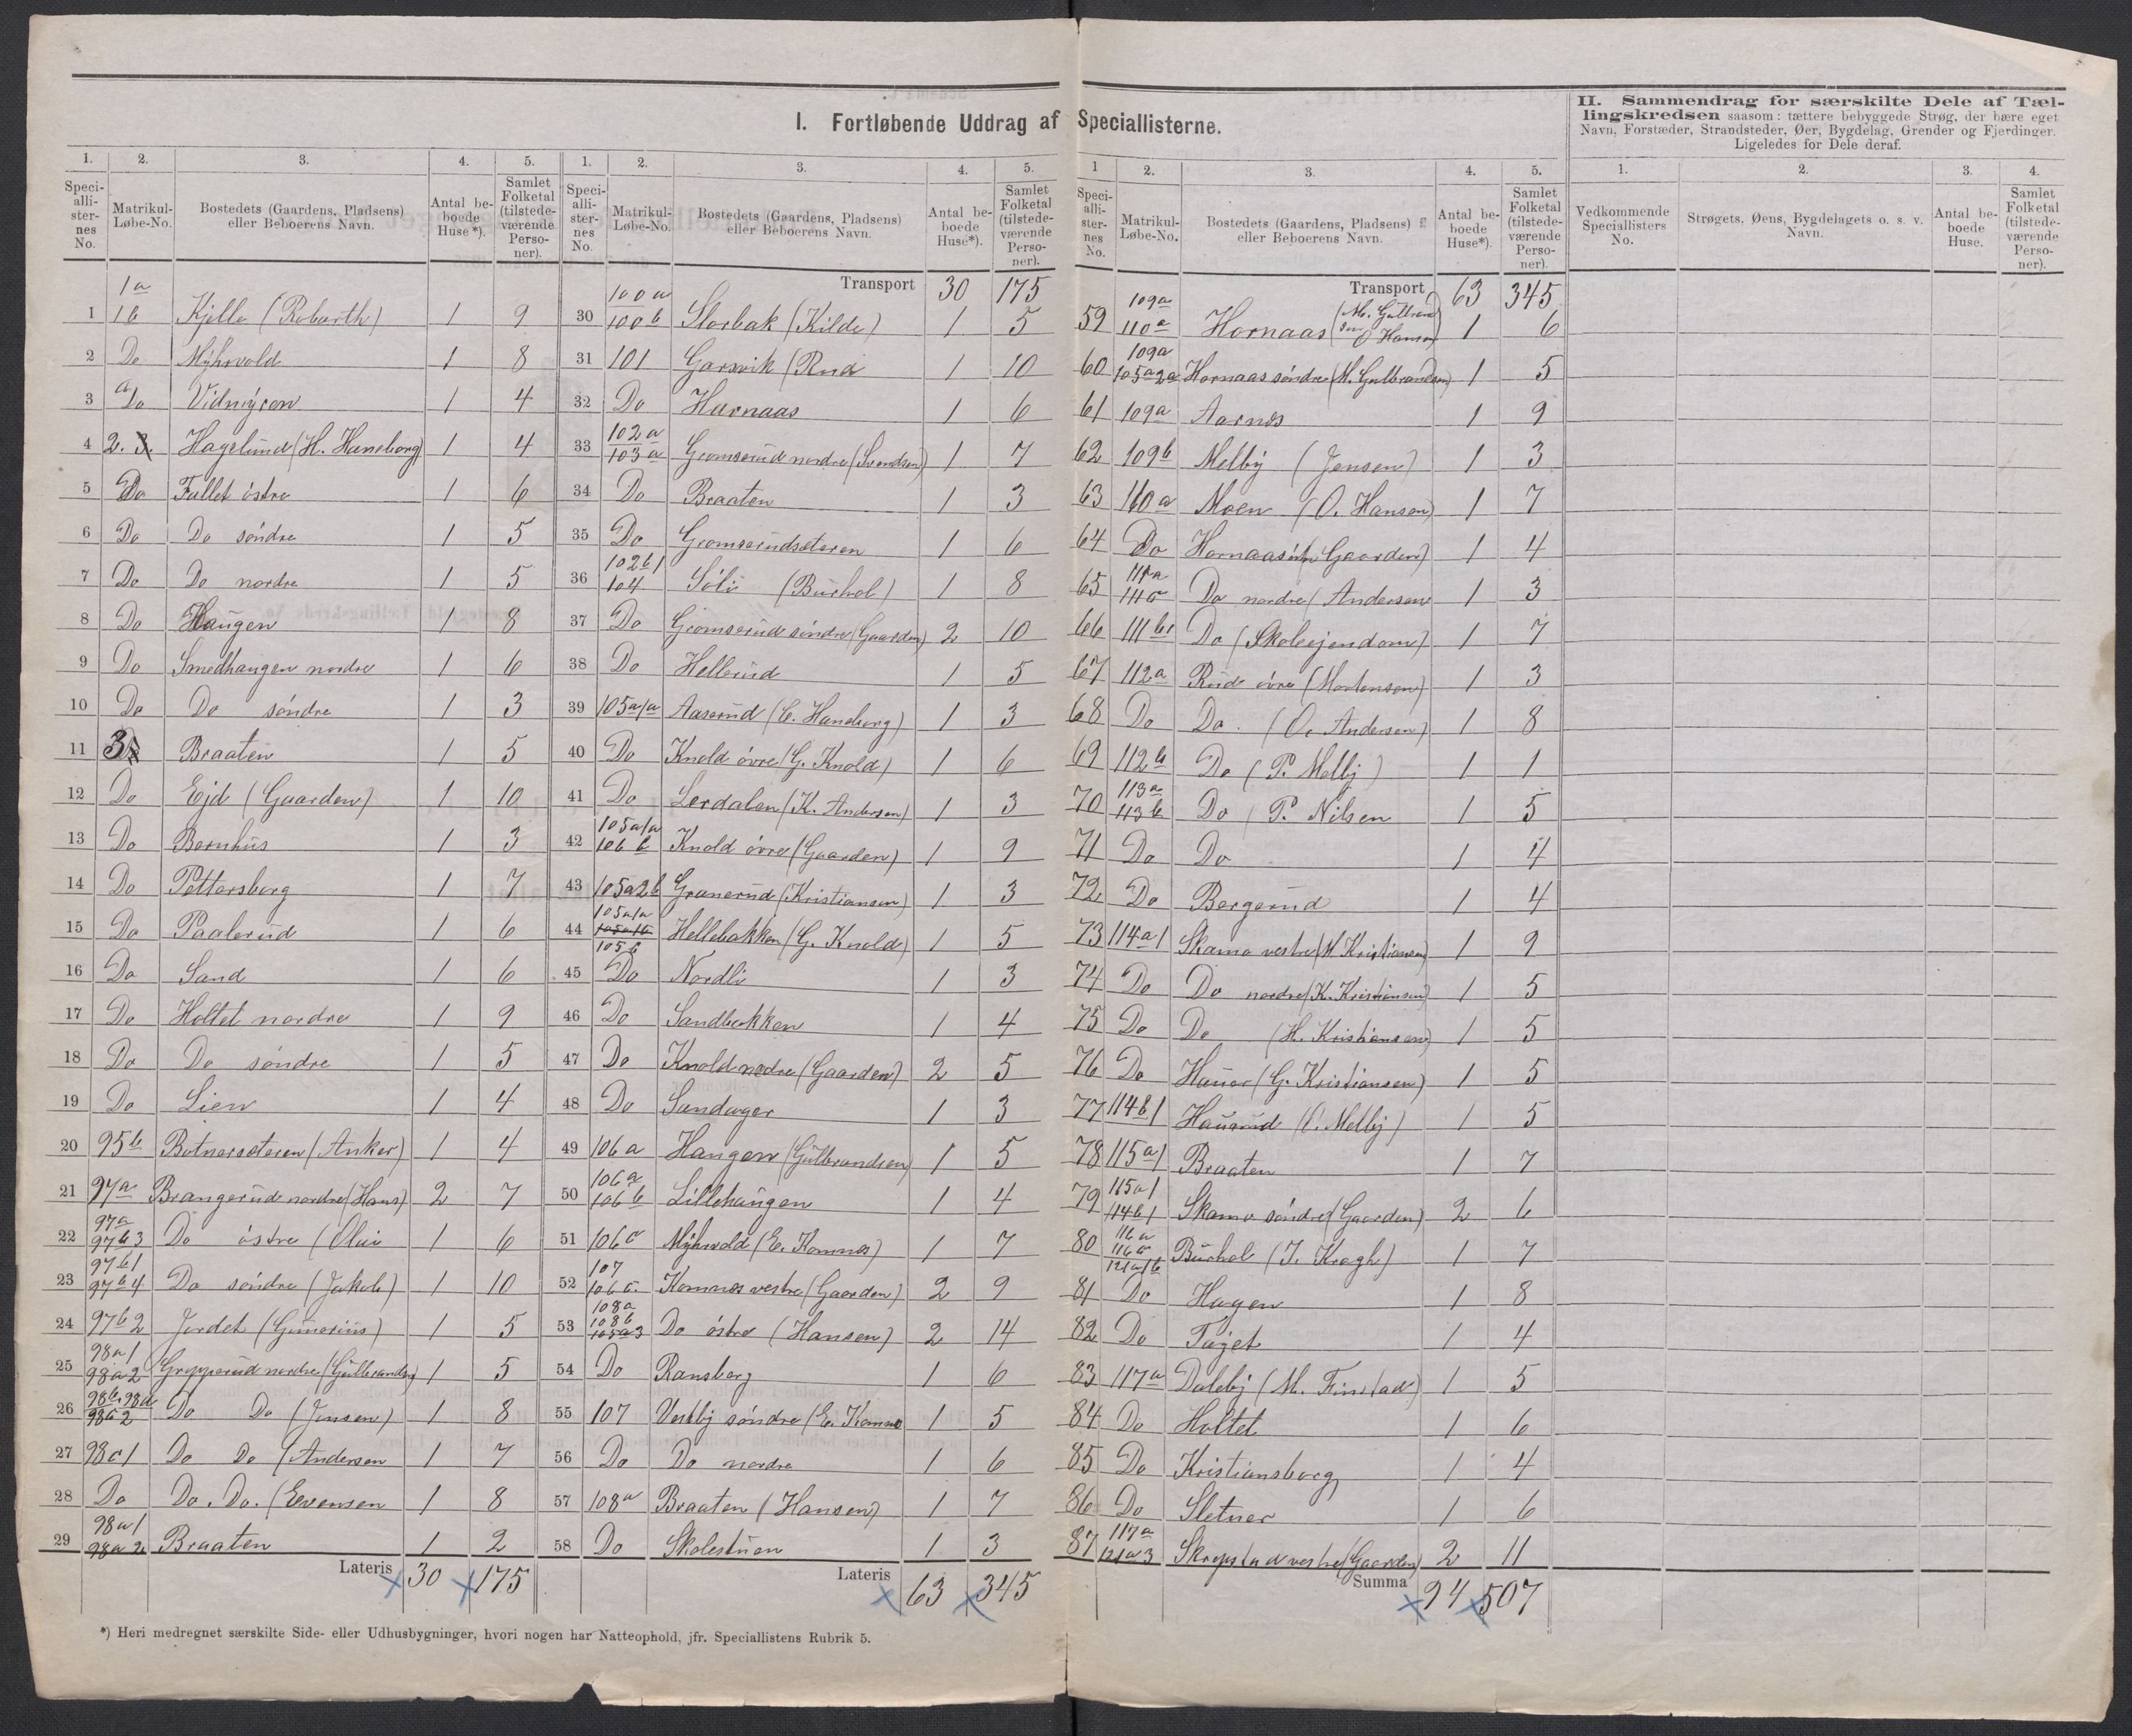 I. Fortløbende Uddrag af Speciallisterne.
II. Sammendrag for særskilte Dele af Tællingskredsen saasom: tættere bebyggede Strøg, der bære eget
Navn, Forstæder, Strandsteder, Øer, Bygdelag, Grender og Fjerdinger.
Ligeledes for Dele deraf.
1. 2. 3. 4. 5.
Speciallisternes No. Matrikul-Løbe-No. Bostedets (Gaardens, Pladsens) eller Beboerens Navn. Antal beboede Huse*). Samlet Folketal (tilstedeværende Personer).
1 1a 1b Kjelle (Robarth) 1 9
2 Do Myhrvold 1 8
3 Do Vidmyren 1 4
4 2. 3. Hagelund (H. Haneborg) 1 4
5 Do Fallet östre 1 6
6 Do Do söndre 1 5
7 Do Do nordre 1 5
8 Do Haugen 1 8
9 Do Smedhaugen nordre 1 6
10 Do Do söndre 1 3
11 3 Braaten 1 5
12 Do Ejd (Gaarden) 1 10
13 Do Bernhus 1 3
14 Do Pettersborg 1 7
15 Do Paalerud 1 6
16 Do Sand 1 6
17 Do Holtet nordre 1 9
18 Do Do söndre 1 5
19 Do Lien 1 4
20 95b Botnersæteren (Anker) 1 4
21 97a Brangerud nordre (Hans) 2 7
22 97a 97b3 Do östre (Olai 1 6
23 97b1 97b4 Do söndre (Jakob) 1 10
24 97b2 Jordet (Gunerius) 1 5
25 98a1 98a2 Gropperud nordre (Gulbrandsen) 1 5
26 98b. 98d 98c2 Do Do (Jensen) 1 8
27 98c1 Do Do (Andersen 1 7
28 Do Do. Do. (Evensen 1 8
29 98a1 98a2 Braaten 1 2
Lateris 30 175
1. 2. 3. 4. 5.
Speciallisternes No. Matrikul-Løbe-No. Bostedets (Gaardens, Pladsens) eller Beboerens Navn. Antal beboede Huse*). Samlet Folketal (tilstedeværende Personer).
Transport 30 175
30 100a 100b Storbak (Kilde) 1 5
31 101 Garsvik (Rud 1 10
32 Do Harnaas 1 6
33 102a 103a Gromserud nordre (Svendsen) 1 7
34 Do Braaten 1 3
35 Do Gromserudsæteren 1 6
36 102b1 104 Söli (Burhol) 1 8
37 Do Gromserud söndre (Gaarden) 2 10
38 Do Hellerud 1 5
39 105a1a Aaserud (E. Haneborg) 1 3
40 Do Knold övre (G. Knold) 1 6
41 Do Lerdalen (K. Andersen) 1 3
42 105a1a 106b Knold övre (Gaarden) 1 9
43 105a2b Granerud (Kristiansen) 1 3
44 105a1a 105a1b 105b Hellebakken (G. Knold) 1 5
45 Do Nordli 1 3
46 Do Sandbakken 1 4
47 Do Knold nedre (Gaarden) 2 5
48 Do Sandager 1 3
49 106a Haugen (Gulbrandsen) 1 5
50 106a 106b Lillehaugen 1 4
51 106c Myhrvold (E. Komnes) 1 7
52 107 106c. Komnes vestre (Gaarden) 2 9
53 108a 108b 105a3 Do östre (Hansen) 2 14
54 Do Ransborg 1 6
55 107 Vestbj söndre (E. Komnes 1 5
56 Do Do nordre 1 6
57 108a Braaten (Hansen) 1 7
58 Do Skolestuen 1 3
Lateris 63 345
1 2. 3. 4. 5.
Speciallisternes No. Matrikul-Løbe-No. Bostedets (Gaardens, Pladsens) eller Beboerens Navn. Antal beboede Huse*). Samlet Folketal (tilstedeværende Personer).
Transport 63 345
59 109a 110a Hornaas (M. Gulbrandsen O Hansen) 1 6
60 109a 105a2a Hornaas söndre (M. Gulbrandsen) 1 5
61 109a Aarnes 1 9
62 109b Melby (Jensen) 1 3
63 110a Moen (O. Hansen) 1 7
64 Do Hornaas östre Gaarden) 1 4
65 111a 111c Do nordre (Andersen 1 3
66 111b1 Do (Skoleejendom) 1 7
67 112a Rud övre (Mortensen) 1 3
68 Do Do. (O. Andersen) 1 8
69 112b Do (P. Melbj) 1 1
70 113a 113b Do (P. Nilsen 1 5
71 Do Do 1 4
72 Do Bergerud 1 4
73 114a1 Skamo vestre (M. Kristiansen) 1 9
74 Do Do nordre (K. Kristiansen) 1 5
75 Do Do (H. Kristiansen) 1 5
76 Do Hauer (G. Kristiansen) 1 5
77 114b1 Haugrud (O. Melbj) 1 5
78 115a1 Braaten 1 7
79 115a1 114b1 Skamo söndre (Gaarden) 2 6
80 116a 116c 121a1b Burhol (J. Kragh) 1 7
81 Do Hagen 1 8
82 Do Tajet 1 4
83 117a Dalebj (M. Finstad) 1 5
84 Do Holtet 1 6
85 Do Kristiansborg 1 4
86 Do Sletner 1 6
87 117a 121a3 Skrepstad vestre (Gaarden) 2 11
Summa 94 507
1. 2. 3. 4.
Vedkommende Speciallisters No. Strøgets, Øens, Bygdelagets o. s. v. Navn. Antal beboede Huse. Samlet Folketal (tilstedeværende Personer).
*) Heri medregnet særskilte Side- eller Udhusbygninger, hvori nogen har Natteophold, jfr. Speciallistens Rubrik 5.